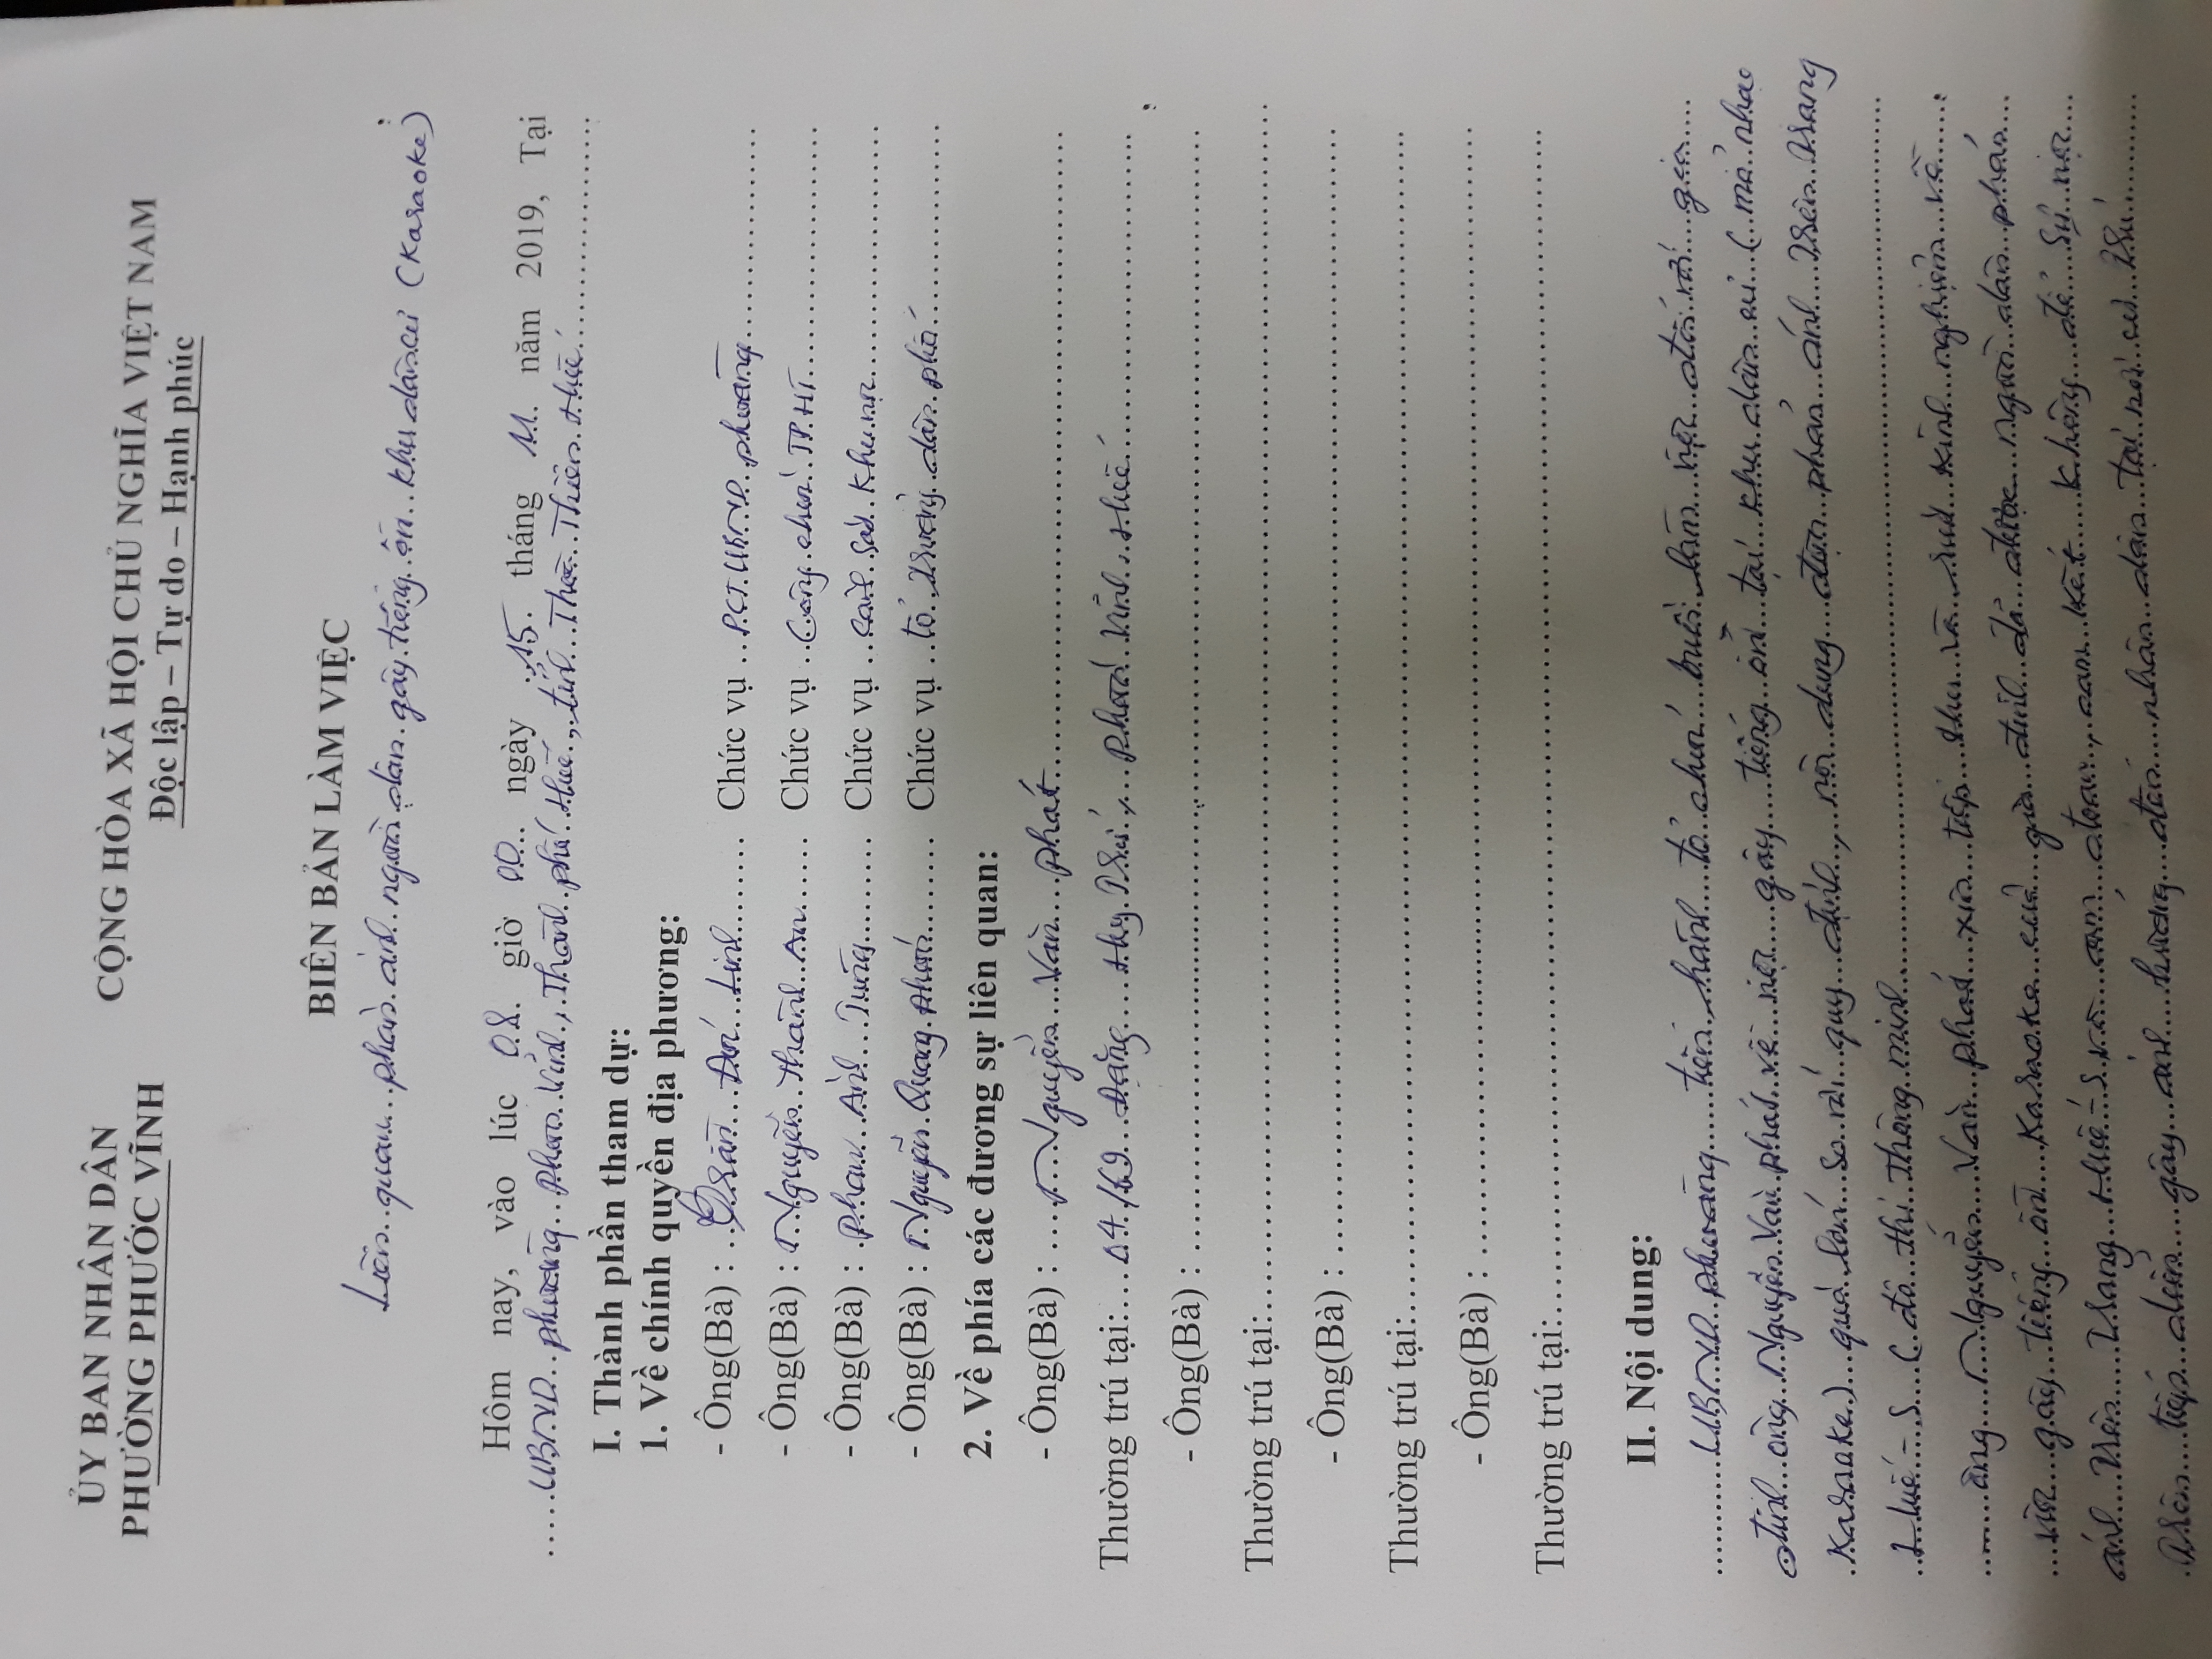 ỦY BAN NHÂN DÂN
PHƯỜNG PHƯỚC VĨNH
CỘNG HÒA XÃ HỘI CHỦ NGHĨA VIỆT NAM
Độc lập – Tự do – Hạnh phúc
BIÊN BẢN LÀM VIỆC
Liên quan phản ánh người dân gây tiếng ồn khu dân cư (Karaoke)
Hôm nay, vào lúc 08 giờ 00 ngày 15 tháng 11 năm 2019, Tại
UBND phường Phước Vĩnh, Thành phố Huế, tỉnh Thừa Thiên Huế
I. Thành phần tham dự:
1. Về chính quyền địa phương:
- Ông(Bà) : Trần Linh Chức vụ P.CT.UBND phường
- Ông(Bà) : Nguyễn Thành An Chức vụ Công chức TP.HT
- Ông(Bà) : Phan Anh Tùng Chức vụ cảnh sát khu vực
- Ông(Bà) : Nguyễn Quang Chức vụ tổ trưởng dân phố
2. Về phía các đương sự liên quan:
- Ông(Bà) : Nguyễn Văn Phát
Thường trú tại: 04/69 Đặng Huy Trứ, Phước Vĩnh, Huế
- Ông(Bà) :
Thường trú tại:
- Ông(Bà) :
Thường trú tại:
- Ông(Bà) :
Thường trú tại:
II. Nội dung:
UBND phường tiến hành tổ chức buổi làm việc đối với gia
đình ông Nguyễn Văn Phát về việc gây tiếng ồn tại khu dân cư (mở nhạc
Karaoke) quá lớn so với quy định, nội dung được phản ánh trên trang
Huế-S (đô thị thông minh
ông Nguyễn Văn Phát xin tiếp thu và rút kinh nghiệm về
việc gây tiếng ồn Karaoke của gia đình đã được người dân phản
ánh trên trang Huế-S và cam kết không để sự việc
trên tiếp diễn gây ảnh hưởng đến nhân dân tại nơi cư trú